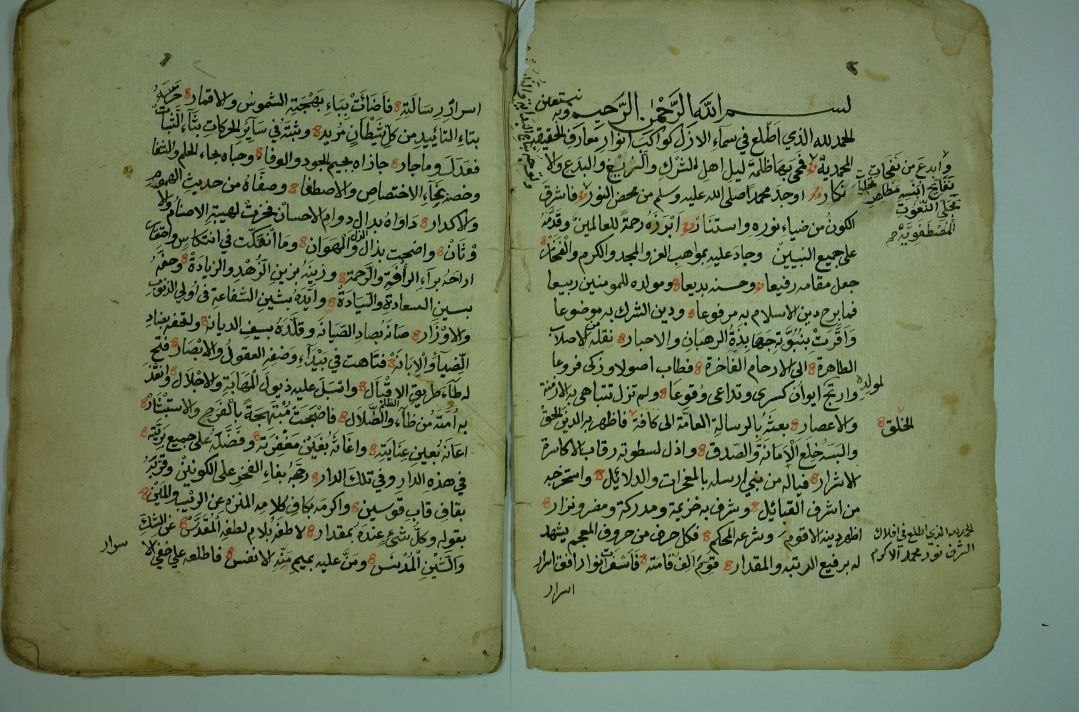 بسم الله الرحمن الرحيم وبه نستعين
الحمد لله الذي اطلع في سماء الازل كواكب انوار معارف الحقيقة
المحمدية فمحى بها ظلمة ليل اهل الشرك والزيغ والبدع ولا
نكار اوجد محمدا صلى الله عليه وسلم من محض النور فاشرق
الكون من ضياء نوره واستنار أبرزه رحمة للعالمين وقدمه
على جميع النبيين وجاد عليه بمواهب العز والمجد والكرم والفخار
جعل مقامه رفيعا وحسنه بديعا ومولده للمومنين ربيعا
فما برح دين الاسلام به مرفوعا ودين الشرك به موضوعا
وأقرت بنبوته جهابذة الرهبان والاحبار نقله من الاصلاب
الطاهرة الى الارحام الفاخرة فطاب اصولا وزكى فروعا
وارتج ايوان كسرى وتداعى وقوعا ولم تزل تتباهى به الازمنة
والاعصار بعثه بالرسالة العامة الى كافة فاظهر به الدين الحق
والبسه خلع الامانة والصدق واذل لسطوته رقاب الاكاسرة
الاشرار فياله من نبي ارسله بالمعجزات والدلائل واستخرجه
من اشرف القبائل وشرف به خزيمة ومدركة ومضر ونزار
اظهر دينه الاقوم وشرعه المحكم فكل حرف من حروف المعجم يشهد
له برفيع الرتبه والمقدار قوم الف قامته فاسفر انوار افق اسرار
اسرار
وابدع من نفحات
تجلي النعوت
المصطفوية
لمولده
الخلق
الحمد لله الذي اطلع في افلاك
الشرف نور محمد الاكرم
اسرار رسالته فأضاءت بباء بهجته الشموس والاقمار حرسه
بتاء التاييد من كل شيطان مريد وثبته في ساير الحركات بثاء الثبات
فعدل وما جار جازاه بجيم الجود والوفا وحباه بحاء الحلم والشفا
وخصه بخاء الاختصاص والاصطفا وصفاه من حديث الهموم
والاكدار داواه بدال دوام الاحسان فخرت لهيبته الاصنام والا
وثان واضحت بذال الذل والهوان وما انفكت في انتكاس واحتقار
اراحه براء الرأفة والرحمة وزينه بزين الزهد والزيادة وحفه
بسين السعادة والسيادة وايده بشين الشفاعة في اولي الذنوب
والاوزار صانه بصاد الصيانه وقلده بسيف الديانة واتحفه بضاد
الضيا والابانة فتاهت في بيداء وصفه العقول والابصار فتح
له طاء طريق الاقبال واسبل عليه ذيول المهابة والاجلال وانقذ
به أمته من ظاء الظلم والضلال فاصبحت مبتهجة بالفرج والاستبشار
اعانه بعين عنايته واغاثه بغين مغفرته وفضله على جميع بريته
في هذه الدار وفي تلك الدار رجحه بفاء الفخر على الكونين وقربه
بقاف قاب قوسين واكرمه بكاف كلامه المنزه عن الريب والمين
بقوله وكل شيء عنده بمقدار لاطفه بلام لطفه المقدس عن الشك
والشين المدنس ومن عليه بميم منه الانفس فاطلعه على خفي الا
سرار